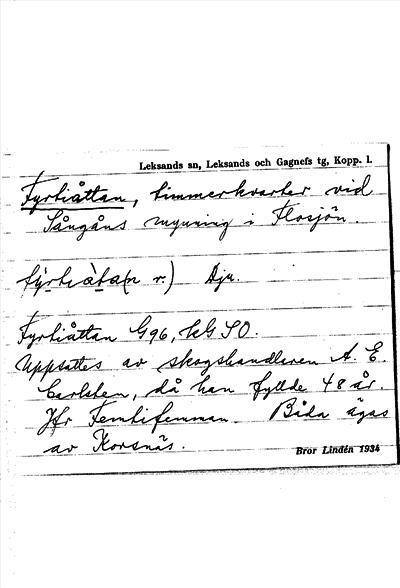 Leksands sn, Leksands och Gagnefs tg, Kopp. l.
Fyrtiåttan, timmerkvarter vid
Sångåns mynning i Flosjön.
Dju.
Fyrtiåttan G96, kG SO.
Uppsattes av skogshandleren A. E.
Carlsten, då han fyllde 48 år.
Jfr Femtifemman. Båda ägas
av Korsnäs.
Bror Lindén 1934